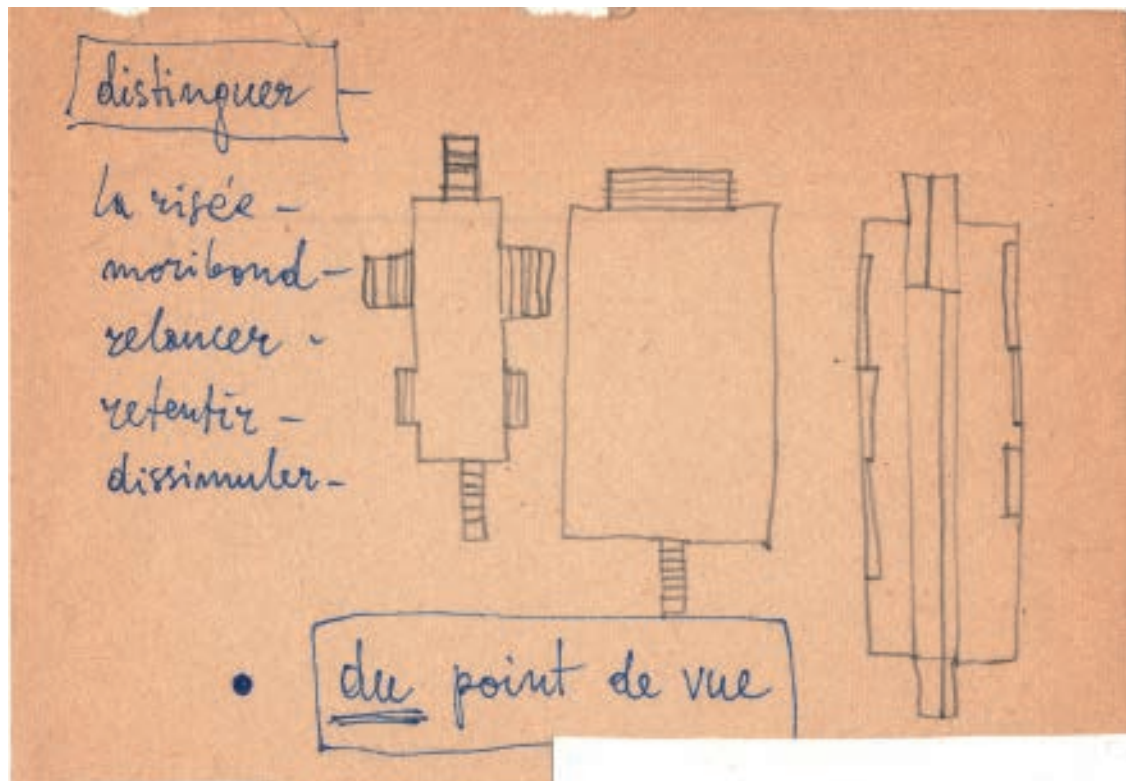 distinguer -
la risée -
moribond -
relancer -
retentir -
dissimuler -
• du point de vue